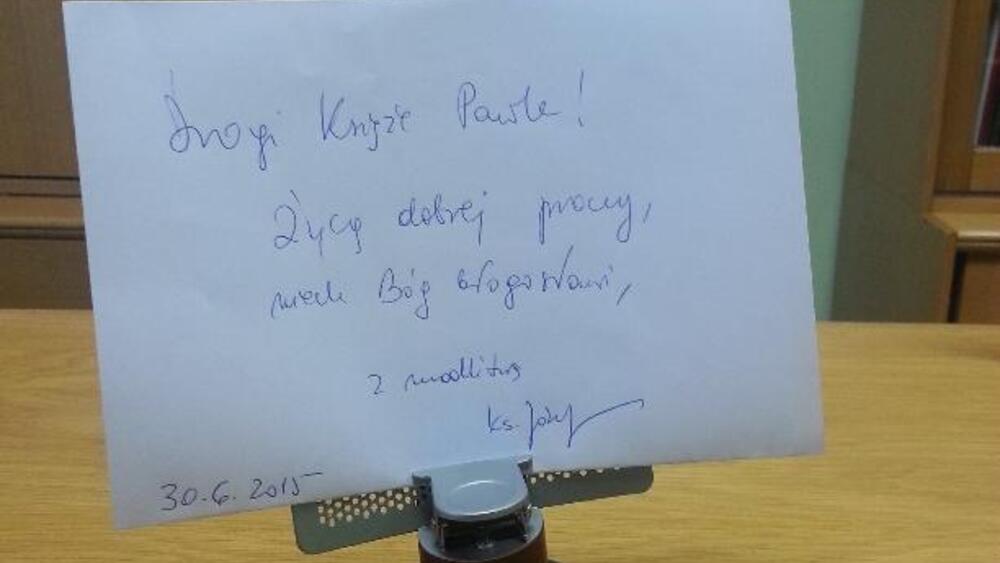 Drogi Księże Pawle!
Życzę dobrej pracy,
niech Bóg błogosławi,
z modlitwą
ks. Józef
30.6.2015